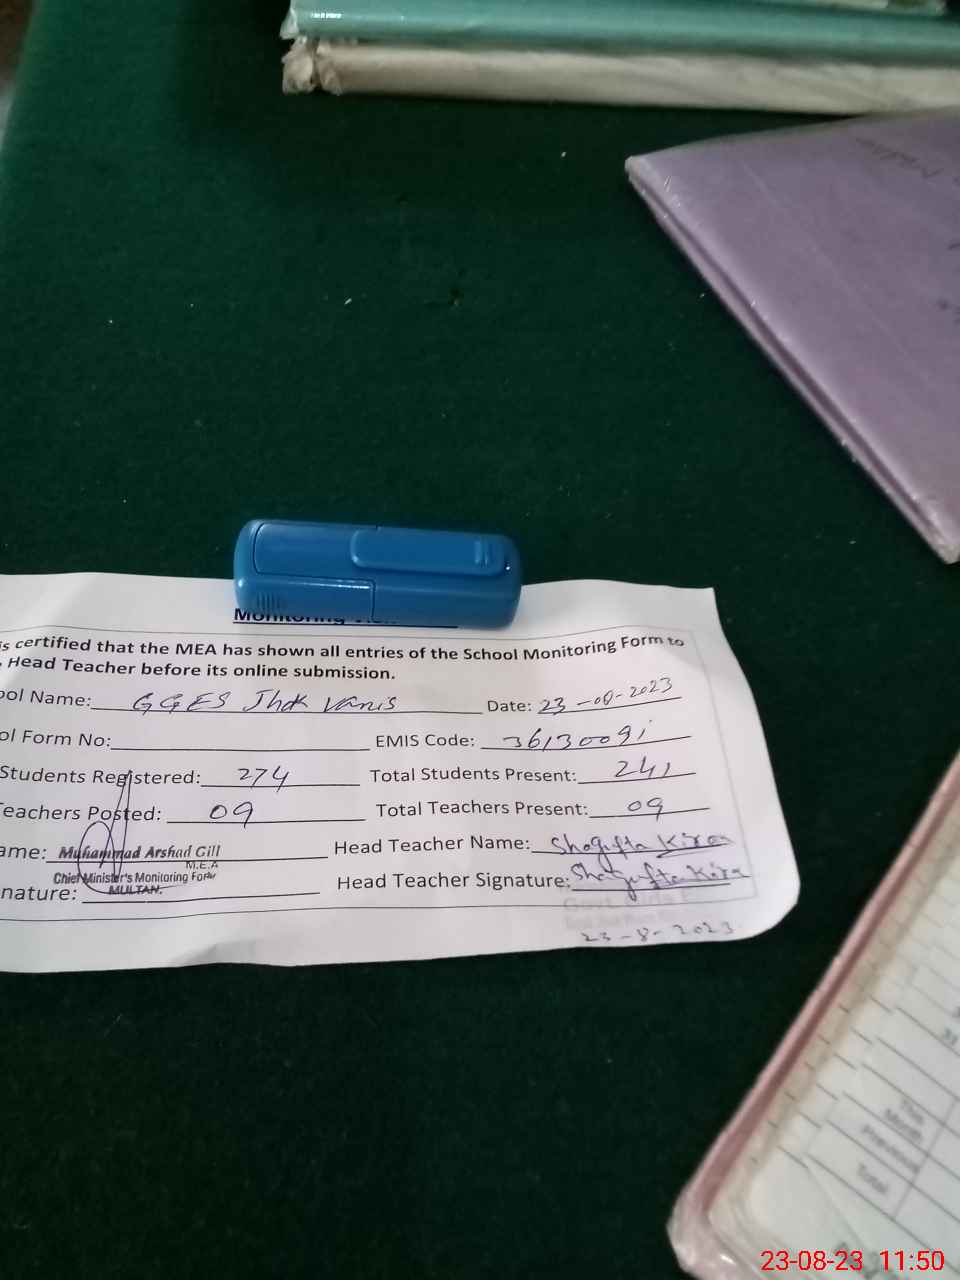 Monitoring
is certified that the MEA has shown all entries of the School Monitoring Form to
Head Teacher before its online submission.
ool Name: GGES Jhok Vanis Date: 23-08-2023
ol Form No: EMIS Code: 36130091
Students Registered: 274 Total Students Present: 241
eachers Posted: 09 Total Teachers Present: 09
ame: Muhammad Arshad Gill Head Teacher Name: Shagufta Kiran
M.E.A
Chief Minister's Monitoring Force
MULTAN.
nature: Head Teacher Signature: Shagufta Kiran
23-8-2023
31
This
Month
Previous
Total
23-08-23 11:50